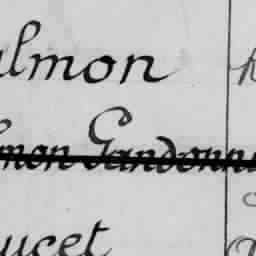 almon
mon Gandonn
ucet